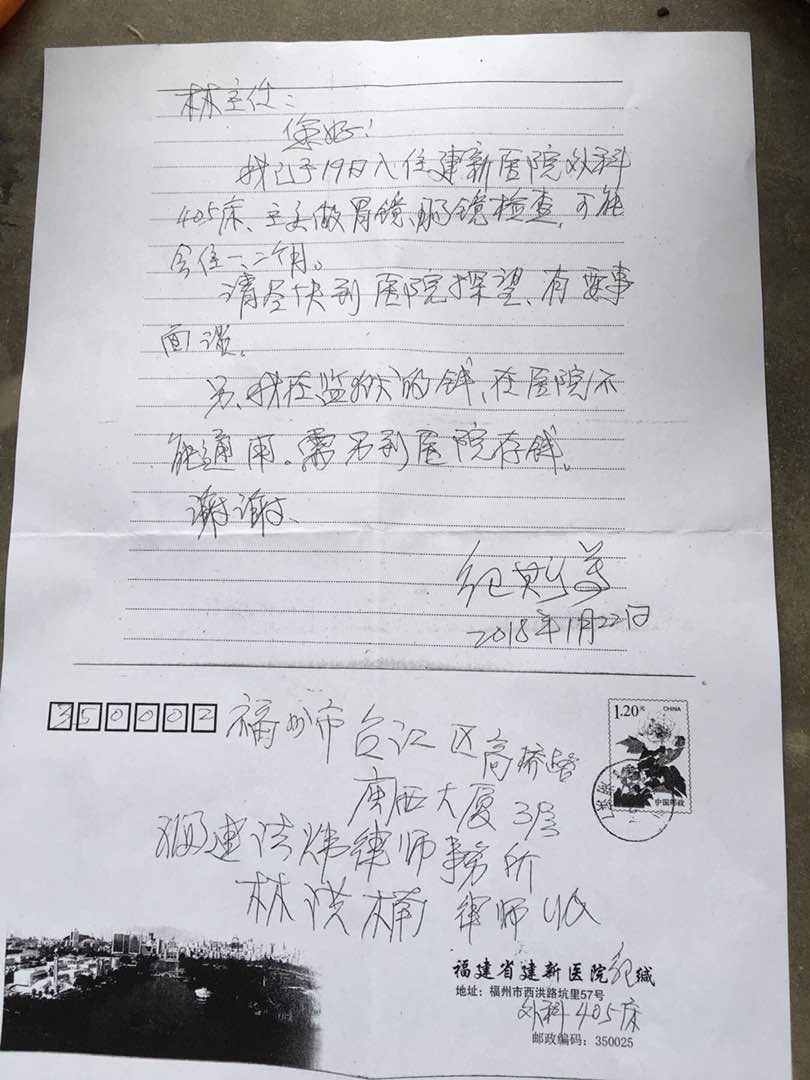 林主任：
您好！
我已于19日入住建新医院外科
405床、主要做胃镜、肠镜检查，可能
会住一、二个月。
请尽快到医院探望、有要事
面谈。
另、我在监狱的钱、在医院不
能通用。需另到医院存钱。
谢谢、
纪斯尊
2018年1月22日
350002
福州市台江区高桥路
广西大厦3层
福建法炜律师事务所
林洪楠 律师收
1.20元 CHINA
中国邮政
福建省建新医院纪缄
地址：福州市西洪路坑里57号
外科405床
邮政编码：350025